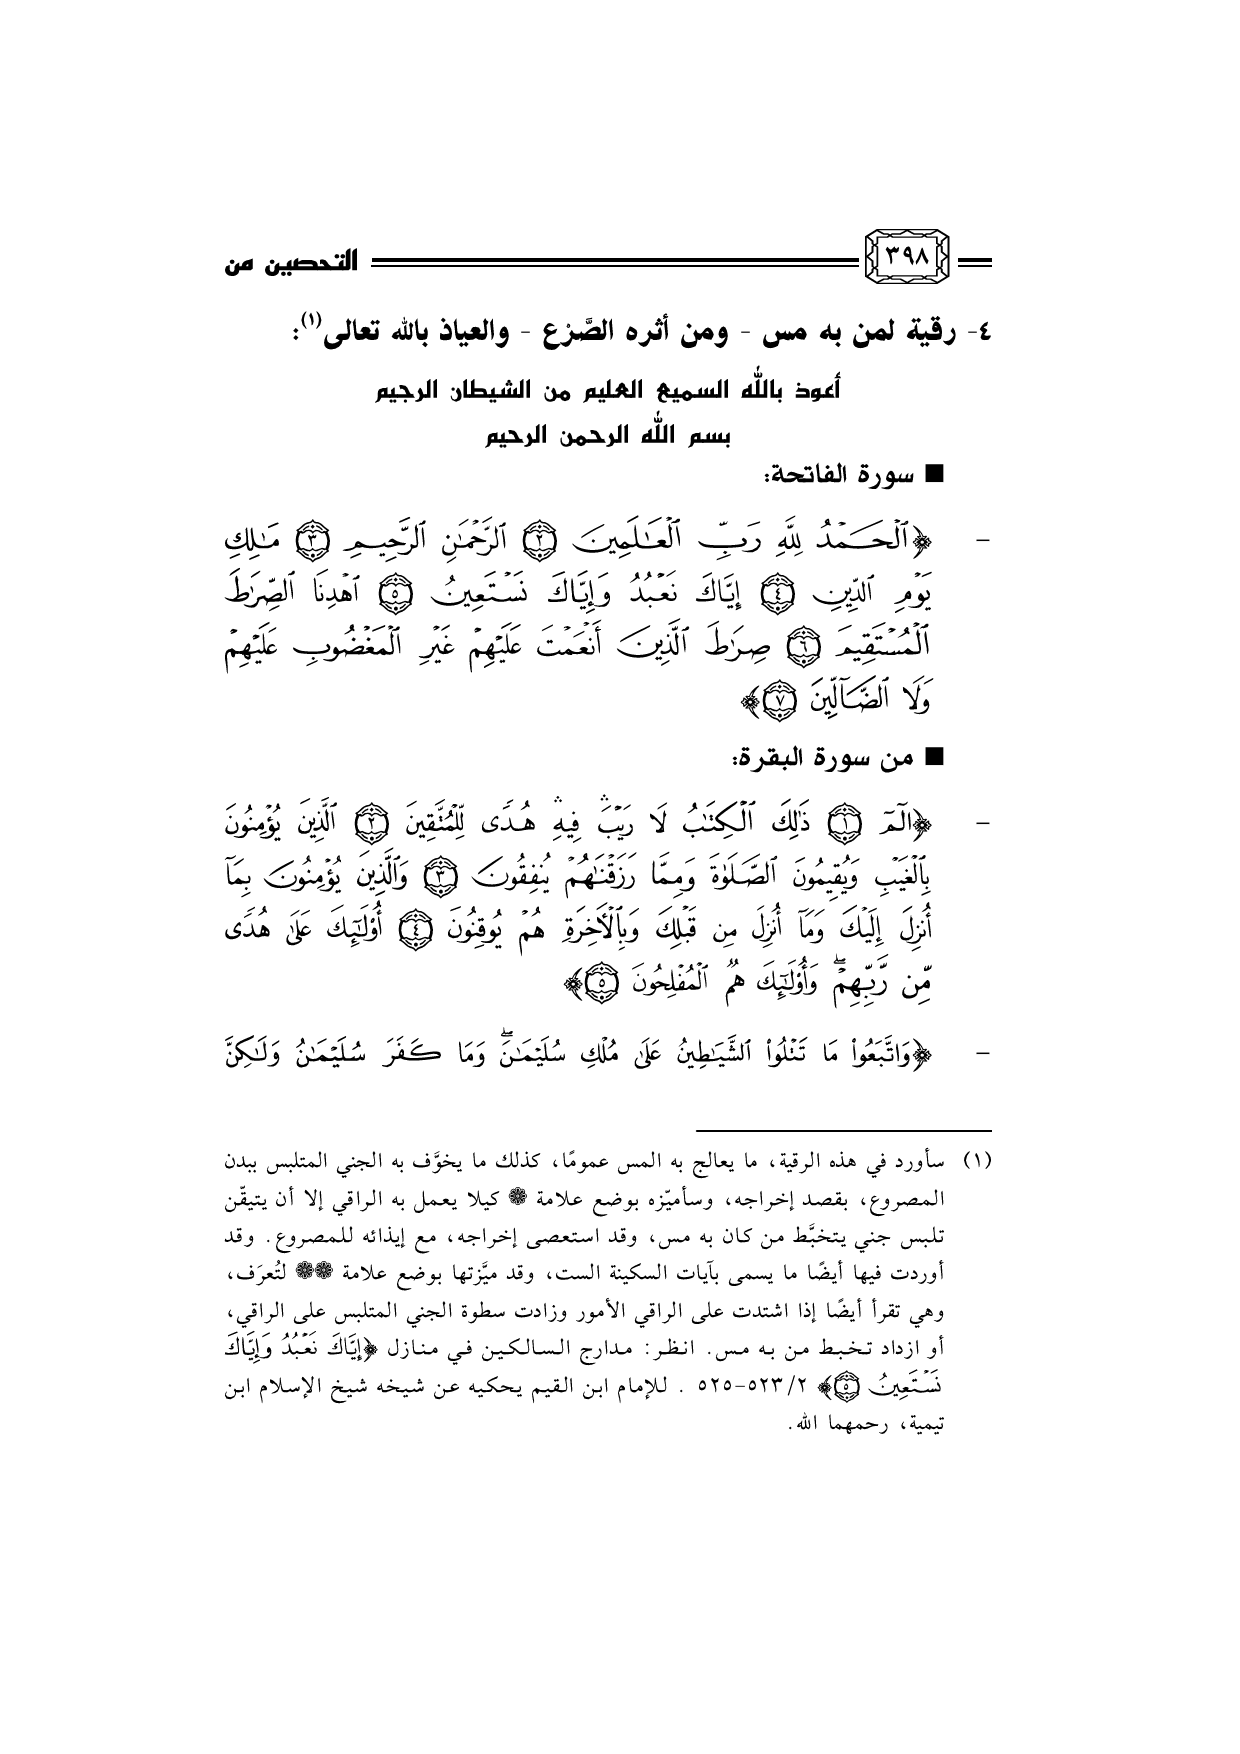 التحصين من ٣٩٨
٤- رقية لمن به مس - ومن أثره الصَّرع - والعياذ بالله تعالى(١):
أعوذ بالله السميع العليم من الشيطان الرجيم
بسم الله الرحمن الرحيم
■ سورة الفاتحة:
– ﴿ٱلۡحَمۡدُ لِلَّهِ رَبِّ ٱلۡعَٰلَمِينَ ٢ ٱلرَّحۡمَٰنِ ٱلرَّحِيمِ ٣ مَٰلِكِ
يَوۡمِ ٱلدِّينِ ٤ إِيَّاكَ نَعۡبُدُ وَإِيَّاكَ نَسۡتَعِينُ ٥ ٱهۡدِنَا ٱلصِّرَٰطَ
ٱلۡمُسۡتَقِيمَ ٦ صِرَٰطَ ٱلَّذِينَ أَنۡعَمۡتَ عَلَيۡهِمۡ غَيۡرِ ٱلۡمَغۡضُوبِ عَلَيۡهِمۡ
وَلَا ٱلضَّآلِّينَ ٧﴾
■ من سورة البقرة:
– ﴿الٓمٓ ١ ذَٰلِكَ ٱلۡكِتَٰبُ لَا رَيۡبَۛ فِيهِۛ هُدٗى لِّلۡمُتَّقِينَ ٢ ٱلَّذِينَ يُؤۡمِنُونَ
بِٱلۡغَيۡبِ وَيُقِيمُونَ ٱلصَّلَوٰةَ وَمِمَّا رَزَقۡنَٰهُمۡ يُنفِقُونَ ٣ وَٱلَّذِينَ يُؤۡمِنُونَ بِمَآ
أُنزِلَ إِلَيۡكَ وَمَآ أُنزِلَ مِن قَبۡلِكَ وَبِٱلۡأٓخِرَةِ هُمۡ يُوقِنُونَ ٤ أُوْلَٰٓئِكَ عَلَىٰ هُدٗى
مِّن رَّبِّهِمۡۖ وَأُوْلَٰٓئِكَ هُمُ ٱلۡمُفۡلِحُونَ ٥﴾
– ﴿وَٱتَّبَعُواْ مَا تَتۡلُواْ ٱلشَّيَٰطِينُ عَلَىٰ مُلۡكِ سُلَيۡمَٰنَۖ وَمَا كَفَرَ سُلَيۡمَٰنُ وَلَٰكِنَّ
(١) سأورد في هذه الرقية، ما يعالج به المس عمومًا، كذلك ما يخوَّف به الجني المتلبس ببدن
المصروع، بقصد إخراجه، وسأميّزه بوضع علامة ❁ كيلا يعمل به الراقي إلا أن يتيقّن
تلبس جني يتخبَّط من كان به مس، وقد استعصى إخراجه، مع إيذائه للمصروع. وقد
أوردت فيها أيضًا ما يسمى بآيات السكينة الست، وقد ميَّزتها بوضع علامة ❁❁ لتُعرَف،
وهي تقرأ أيضًا إذا اشتدت على الراقي الأمور وزادت سطوة الجني المتلبس على الراقي،
أو ازداد تخبط من به مس. انظر: مدارج السالكين في منازل ﴿إِيَّاكَ نَعۡبُدُ وَإِيَّاكَ
نَسۡتَعِينُ ٥﴾ ٢/ ٥٢٣-٥٢٥ . للإمام ابن القيم يحكيه عن شيخه شيخ الإسلام ابن
تيمية، رحمهما الله.